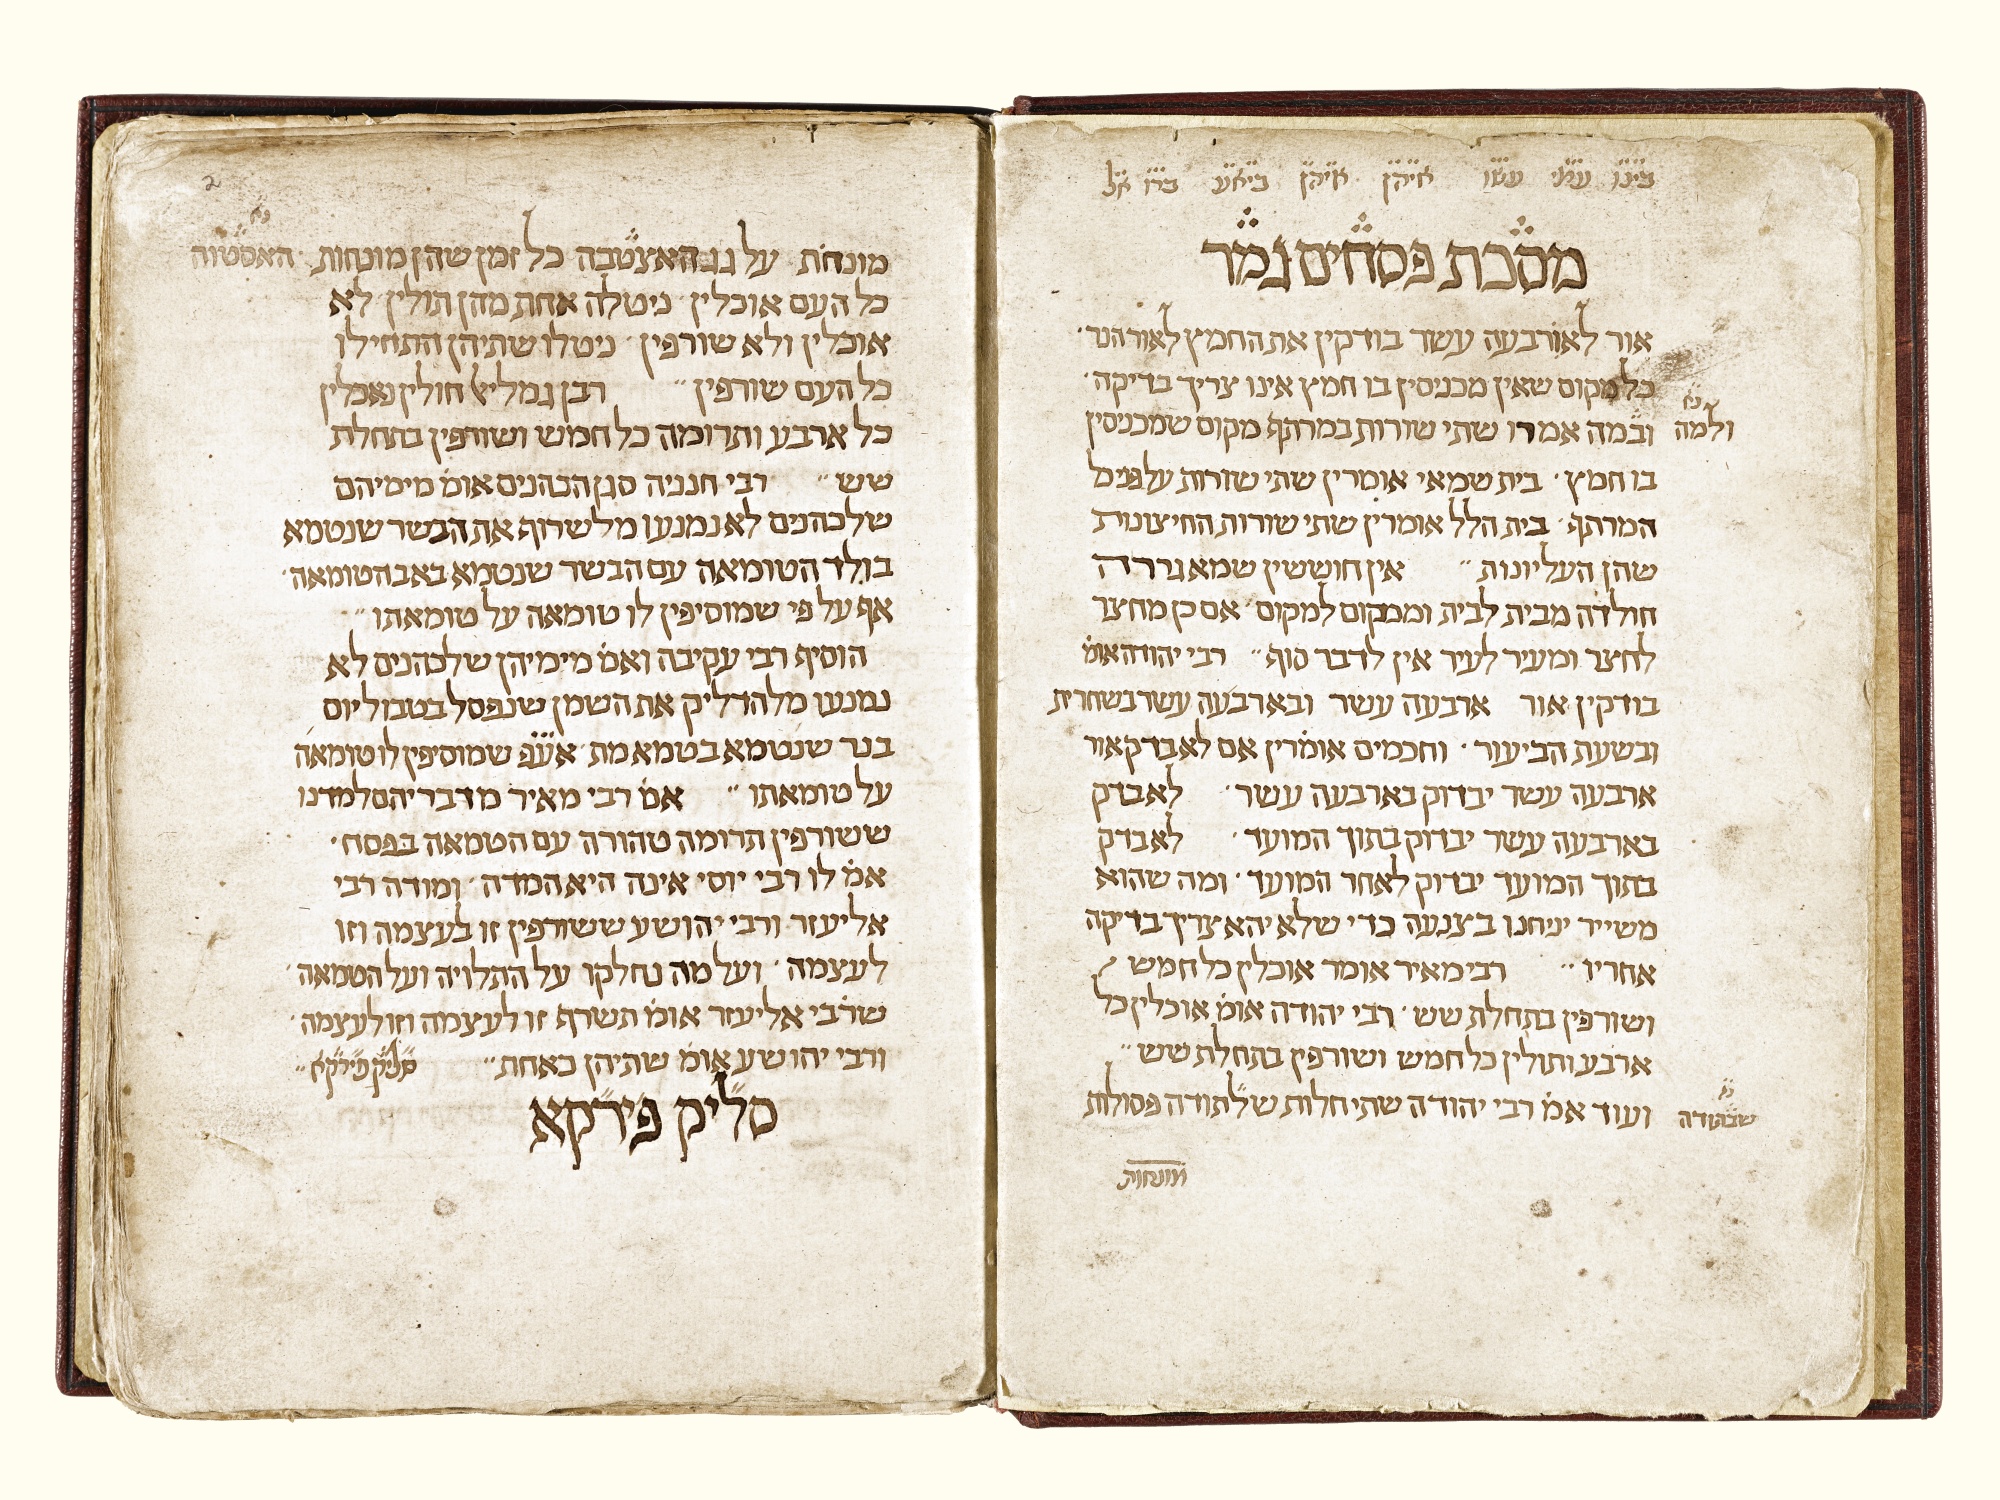 מסכת פסחים גמר
אור לאורבעה עשר בודקין את החמץ לאור הנר ·
כל מקום שאין מכניסין בו חמץ אינו צריך בדיקה ·
נא
ולמה
ובמה אמרו שתי שורות במרתף מקום שמכניסין
בו חמץ · בית שמאי אומרין שתי שורות על פני כל
המרתף · בית הלל אומרין שתי שורות החיצונות
שהן העליונות " אין חוששין שמא גיררה
חולדה מבית לבית וממקום למקום · אם כן מחצר
לחצר ומעיר לעיר אין לדבר סוף " רבי יהודה אומ
בודקין אור ארבעה עשר ובארבעה עשר בשחרית
ובשעת הביעור · וחכמים אומרין אם לא בדק אור
ארבעה עשר יבדוק בארבעה עשר · לא בדק
בארבעה עשר יבדוק בתוך המועד · לא בדק
בתוך המועד יבדוק לאחר המועד · ומה שהוא
משייר יניחנו בצנעה כדי שלא יהא צריך בדיקה
אחריו " רבי מאיר אומר אוכלין כל חמש
ושורפין בתחלת שש · רבי יהודה אומ אוכלין כל
ארבע ותולין כל חמש ושורפין בתחלת שש "
ועוד אמ רבי יהודה שתי חלות שלתודה פסולות
נא
שבתודה
מונחות
2
מונחות על גג האצטבה כל זמן שהן מונחות ·
נא
האסטווה
כל העם אוכלין · ניטלה אחת מהן תולין · לא
אוכלין ולא שורפין · ניטלו שתיהן התחילו
כל העם שורפין " רבן גמליא חולין נאכלין
כל ארבע ותרומה כל חמש ושורפין בתחלת
שש " רבי חנניה סגן הכהנים אומ מימיהם
שלכהנים לא נמנעו מלשרוף את הבשר שנטמא
בולד הטומאה עם הבשר שנטמא באב הטומאה ·
אף על פי שמוסיפין לו טומאה על טומאתו "
הוסיף רבי עקיבה ואמ מימיהן שלכהנים לא
נמנעו מלהדליק את השמן שנפסל בטבול יום
בנר שנטמא בטמא מת · אעפ שמוסיפין לו טומאה
על טומאתו " אמ רבי מאיר מדבריהם למדנו
ששורפין תרומה טהורה עם הטמאה בפסח ·
אמ לו רבי יוסי אינה היא המדה · ומודה רבי
אליעזר ורבי יהושע ששורפין זו לעצמה וזו
לעצמה · ועל מה נחלקו על התלויה ועל הטמאה ·
שרבי אליעזר אומ תשרף זו לעצמה וזו לעצמה ·
ורבי יהושע אומ שתיהן כאחת " סליק פירקא "
סליק פירקא